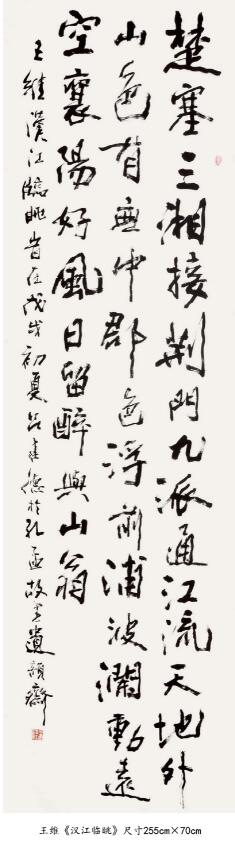 楚塞三湘接荆門九派通江流天地外
山色有無中郡邑浮前浦波瀾動遠
空襄陽好風日留醉與山翁
王維漢江臨眺歲在戊戌初夏吕德於孔孟故里遺韻齋
王维《汉江临眺》尺寸255cm×70cm